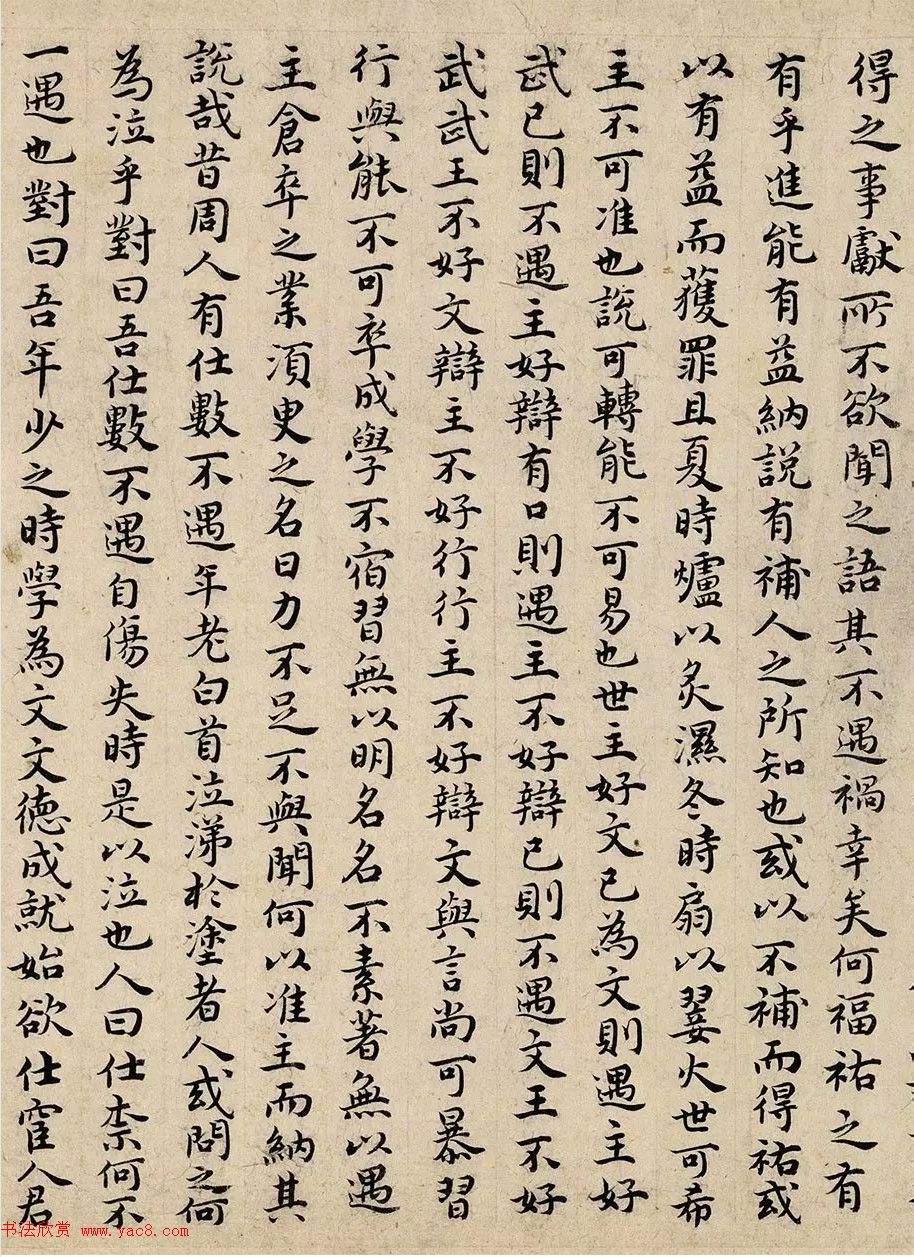 得之事獻所不欲聞之語其不遇禍幸矣何福祐之有
有乎進能有益納說有補人之所知也或以不補而得祐或
以有益而獲罪且夏時爐以炙濕冬時扇以翣火世可希
主不可准也說可轉能不可易也世主好文已為文則遇主好
武已則不遇主好辯有口則遇主不好辯已則不遇文王不好
武武王不好文辯主不好行行主不好辯文與言尚可暴習
行與能不可卒成學不宿習無以明名名不素著無以遇
主倉卒之業須臾之名日力不足不與聞何以准主而納其
說哉昔周人有仕數不遇年老白首泣涕於塗者人或問之何
為泣乎對曰吾仕數不遇自傷失時是以泣也人曰仕柰何不
一遇也對曰吾年少之時學為文文德成就始欲仕宦人君
书法欣赏 www.yac8.com